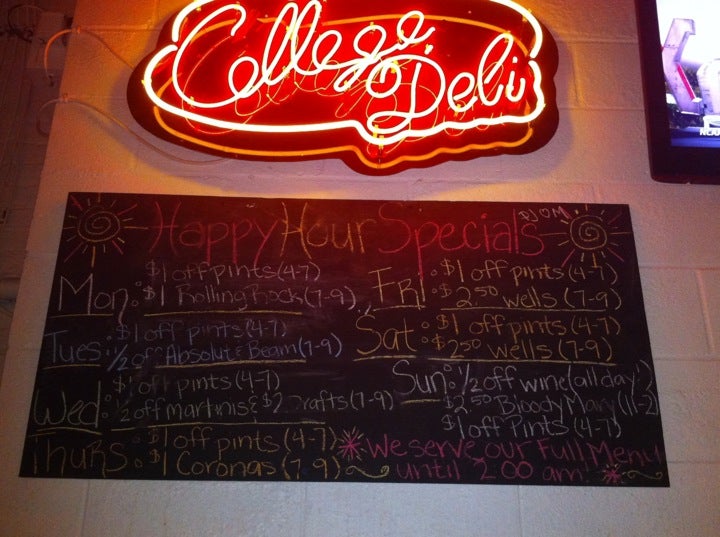 College
Deli
NCAA
Happy Hour Specials
Mon: $1 off pints (4-7)
$1 Rolling Rock (7-9)
Tues: $1 off pints (4-7)
1/2 off Absolut & Beam (7-9)
Wed: $1 off pints (4-7)
1/2 off martinis & $2 rafts (7-9)
Thurs: $1 off pints (4-7)
$1 Coronas (7-9)
Fri: $1 off pints (4-7)
$2.50 wells (7-9)
Sat: $1 off pints (4-7)
$2.50 wells (7-9)
Sun: 1/2 off wine (all day!)
$2.50 Bloody Mary (11-2)
$1 off Pints (4-7)
We serve our Full Menu
until 2:00 am!